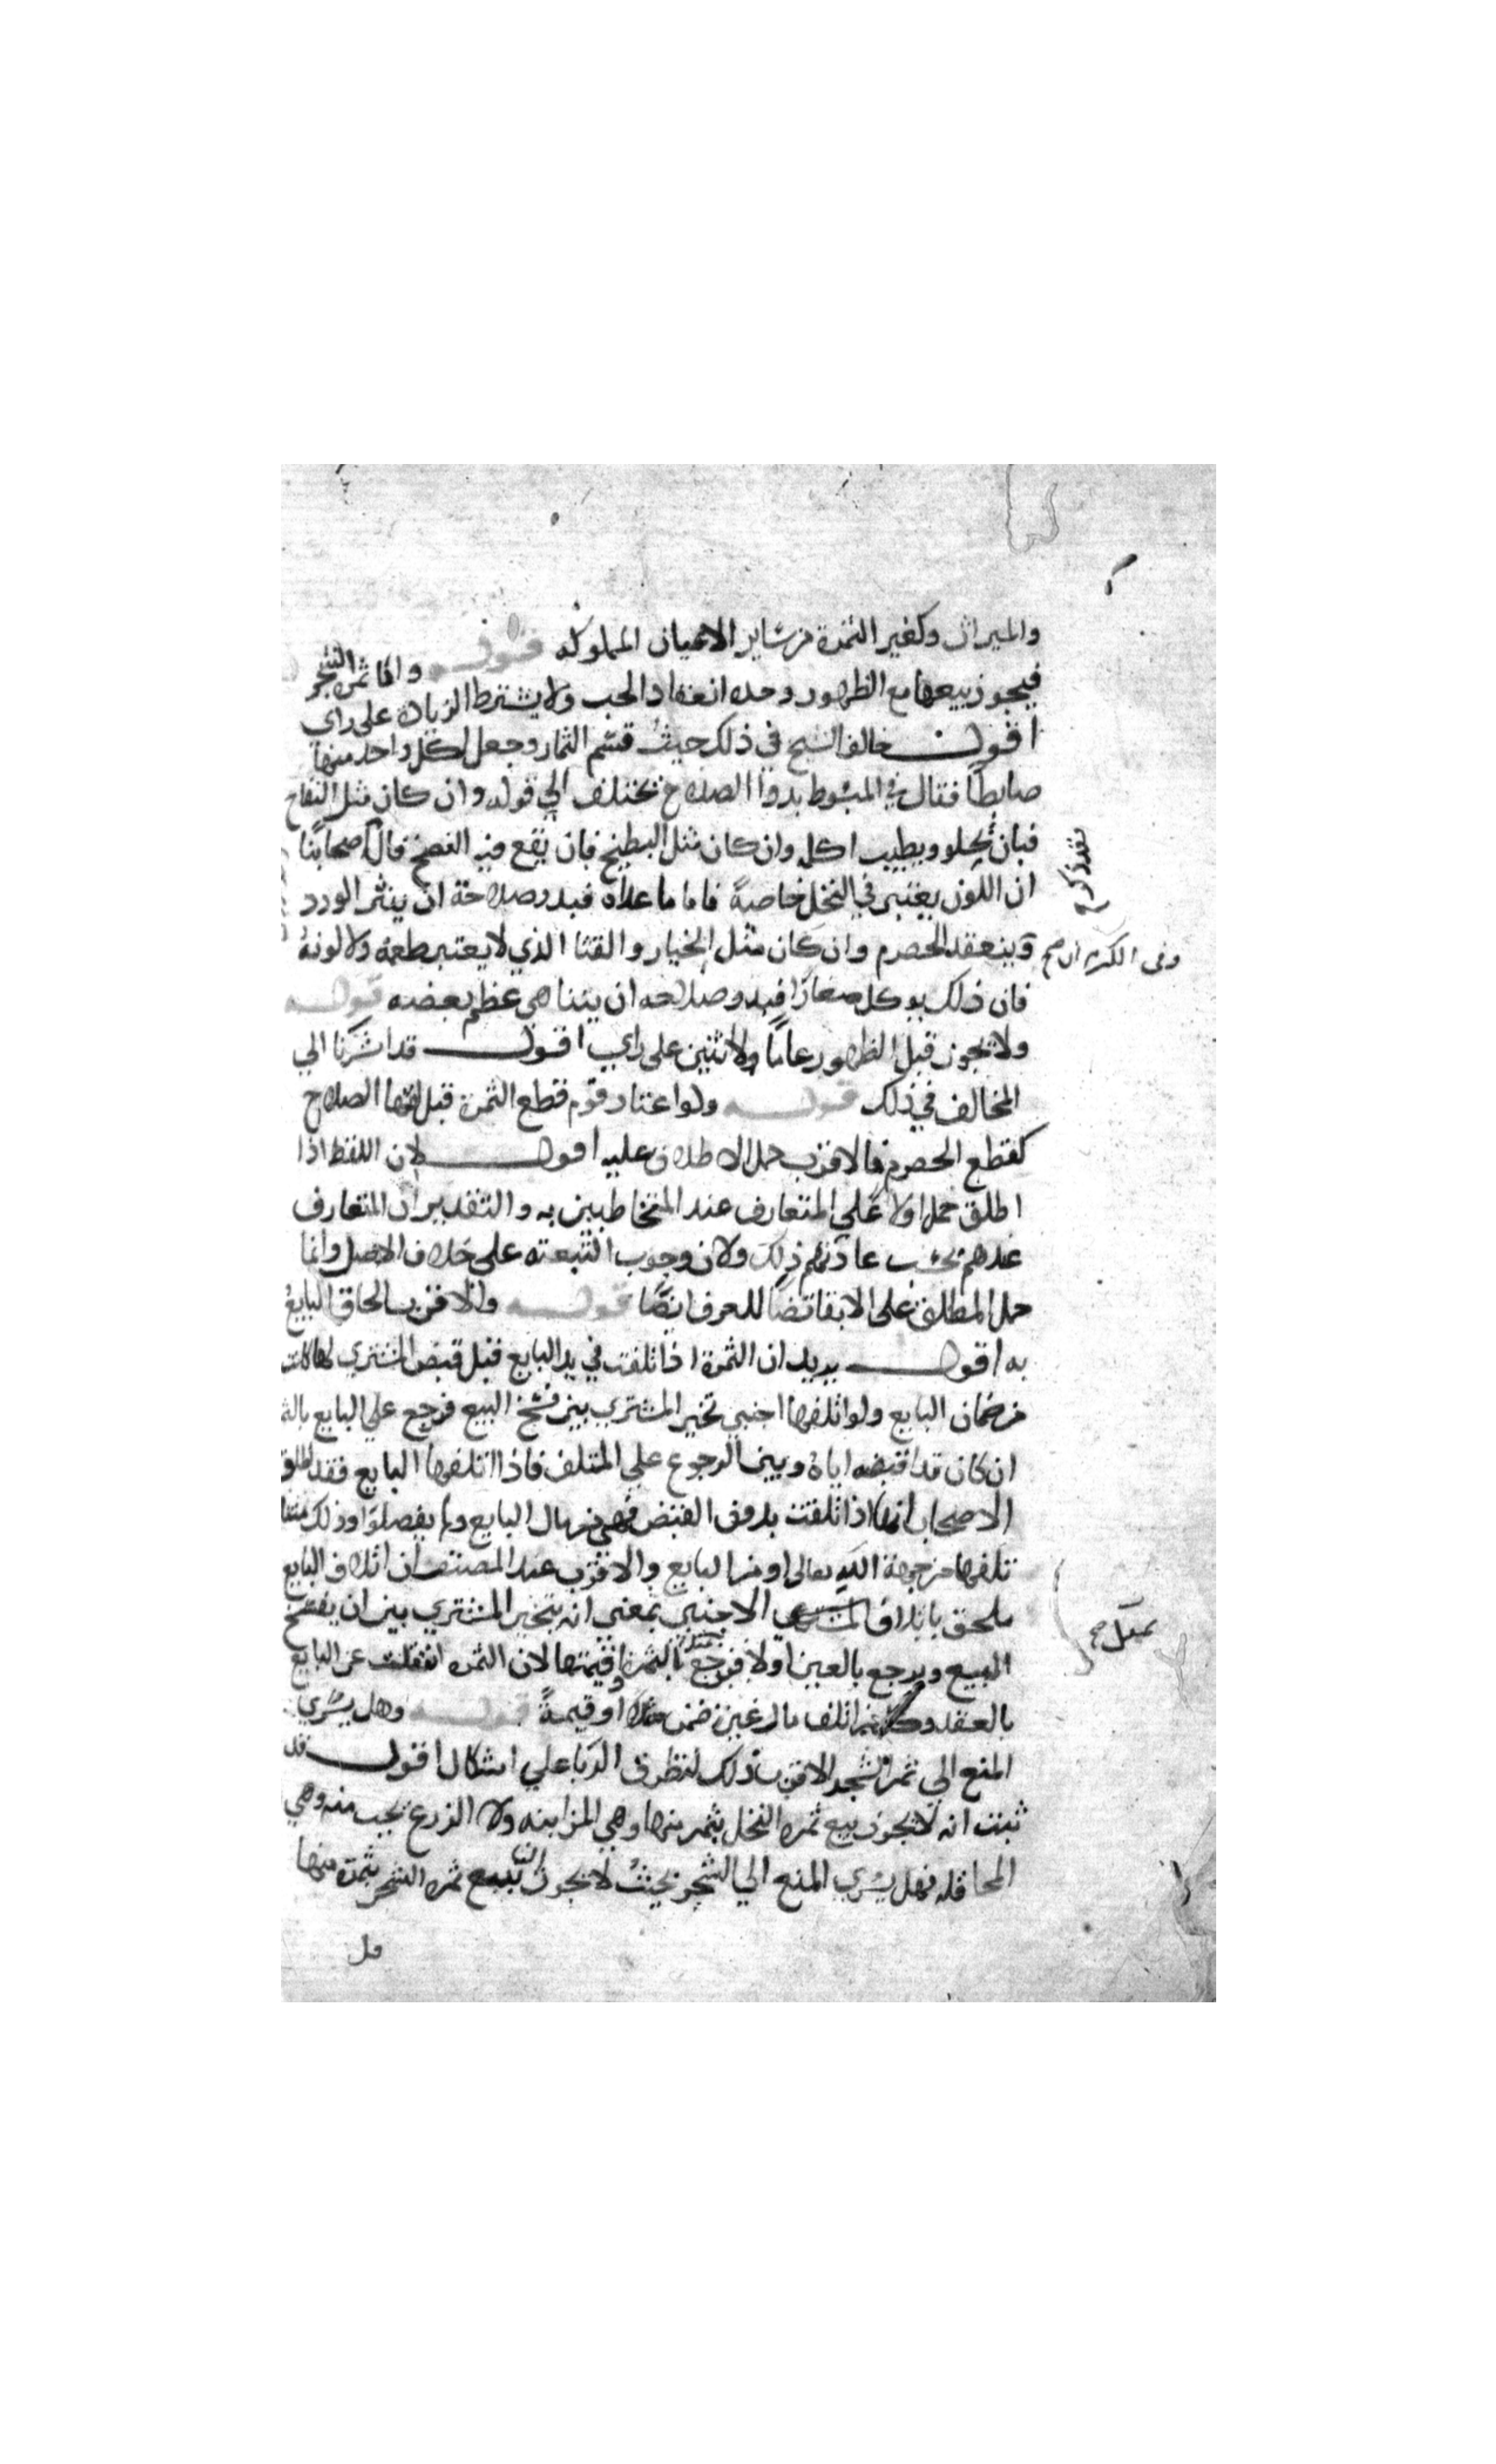 والميراث وكغير الثمرة من ساير الاعيان المملوكه قوله واما ثمرة الشجر
فيجوز بيعها مع الظهور وحده انعقاد الحب ولا يشترط الزيادة على راي
اقول خالف الشيخ في ذلك حيث قسم الثمار وجعل لكل واحد منها
ضابطا فقال في المبسوط بدوا الصلاح تختلف الي قوله وان كان مثل التفاح
فبان يحلو ويطيب اكله وان كان مثل البطيخ فان يقع فيه النضج قال اصحابنا
ان اللون يعتبر في النخل خاصة فاما ما عداه فبدو صلاحة ان ينثر الورد
وينعقد الحصرم وان كان مثل الخيار والقثا الذي لا يعتبر طعمه ولا لونه
وفى الكرم ان صح
فان ذلك يوكل صغارا فبدو صلاحه ان يتناهى عظم بعضه قوله
ولا يجوز قبل الظهور عاما ولا اثنين على راي اقول قد اشرنا الي
المخالف في ذلك قوله ولو اعتاد قوم قطع الثمرة قبل الصلاح
كقطع الحصرم فالاقرب حمل الاطلاق عليه اقول لان اللفظ اذا
اطلق حمل اولا علي المتعارف عند المتخاطبين به والتقدير ان المتعارف
عندهم بحسب عادتهم ذلك ولان وجوب التبعته على خلاف الاصل وانما
حمل المطلق على الابقا للعرف ايضا قوله والاقرب الحاق البايع
به اقول يريد ان الثمرة اذا تلفت في يد البايع قبل قبض المشتري لها كانت
من ضمان البايع ولو اتلفها اجنبي تخير المشتري بين فسخ البيع فرجع علي البايع
ان كان قد اقبضه اياه وبين الرجوع علي المتلف فاذا اتلفها البايع فقد اطلق
الاصحاب انها اذا تلفت بدون القبض فهي من مال البايع ولم يفصلوا وذلك
تلفها من جهة الله تعالى او من البايع والاقرب عند المصنف ان اتلاف البايع
ملحق باتلاف الاجنبي بمعنى انه يتخير المشتري بين ان يفسخ
البيع ويرجع بالعين اولا فيرجع بمثل الثمرة او قيمتها لان الثمره انتقلت عن البايع
بمثل صح
بالعقد وكل من اتلف مال غيره ضمن مثلا او قيمة قوله وهل يسري
المنع الي ثمر الشجر الاقرب ذلك لتطرق الربا علي اشكال اقول قد
ثبت انه لا يجوز بيع ثمره النخل بثمر منها وهي المزابنه ولا الزرع بحب منه وهي
المحاقله فهل يسري المنع الي الشجر بحيث لا يجوز بيع ثمره الشجر بثمرة منها